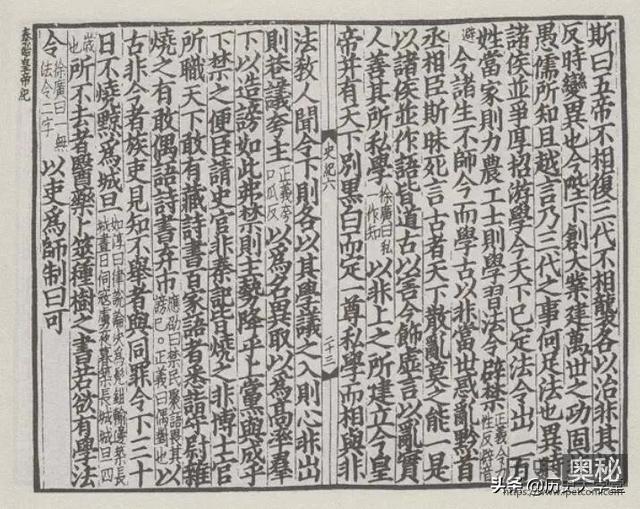 斯曰五帝不相復三代不相襲各以治非其
反時變異也今陛下創大業建萬世之功固
愚儒所知且越言乃三代之事何足法也異時
諸侯並爭厚招游學今天下已定法令出一百
姓當家則力農工士則學習法令辟禁正義令力性反辟音
避今諸生不師今而學古以非當世惑亂黔首
丞相臣斯昧死言古者天下散亂莫之能一是
以諸侯並作語皆道古以害今飾虛言以亂實
人善其所私學徐廣曰私一作知以非上之所建立今皇
帝并有天下別黑白而定一尊私學而相與非
史紀六
二十三
法敎人聞令下則各以其學議之入則心非出
則巷議夸主正義夸口瓜反以爲名異取以爲高率羣
下以造謗如此弗禁則主勢降乎上黨與成乎
下禁之便臣請史官非秦記皆燒之非博士官
所職天下敢有藏詩書百家語者悉詣守尉雜
燒之有敢偶語詩書弃市應劭曰禁民聚語畏其謗已。正義曰偶對也以
古非今者族吏見知不舉者與同罪令下三十
日不燒黥爲城旦如淳曰律說論決爲髡鉗輸邊築長城晝日伺寇虜夜暮築長城城旦四
歲也所不去者醫藥卜筮種樹之書若欲有學法
令徐廣曰一無法令二字以吏爲師制曰可
秦始皇帝紀
奥秘
https://www.petcom.com/